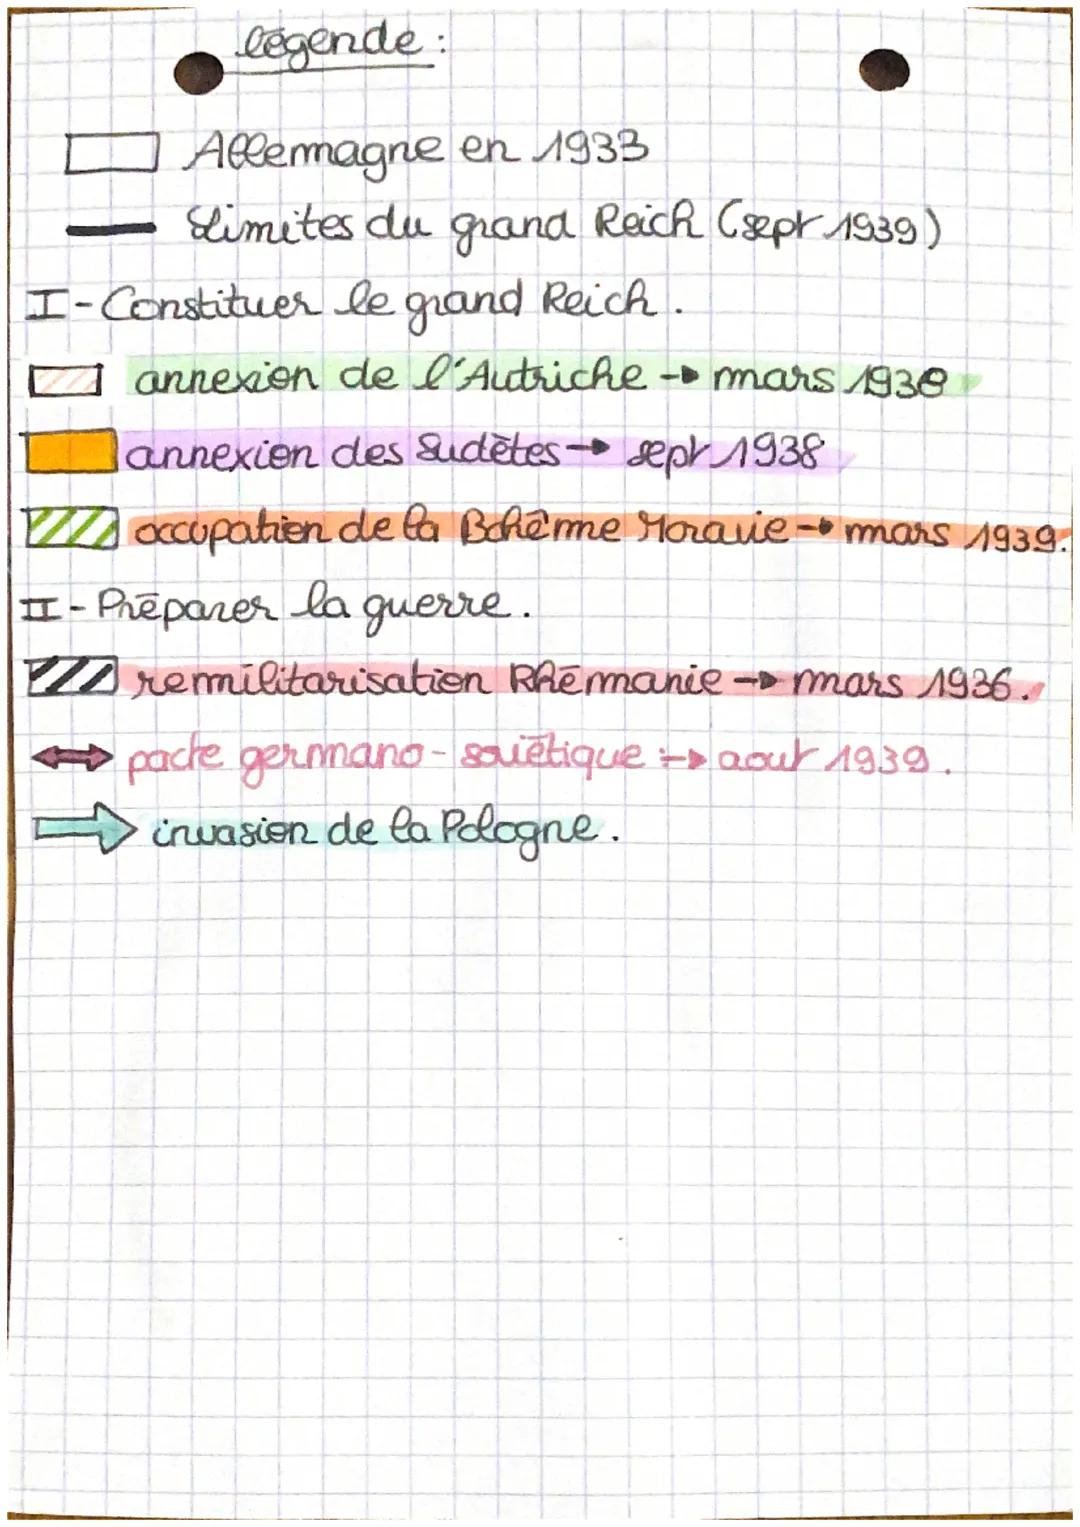 légende :
Allemagne en 1933
Limites du grand Reich (sept 1939)
I - Constituer le grand Reich.
annexion de l'Autriche → mars 1938
annexion des Sudètes → sept 1938
occupation de la Bohême Moravie → mars 1939.
II - Préparer la guerre.
remilitarisation Rhémanie → mars 1936.
pacte germano-soviétique :→ aout 1939.
invasion de la Pologne.